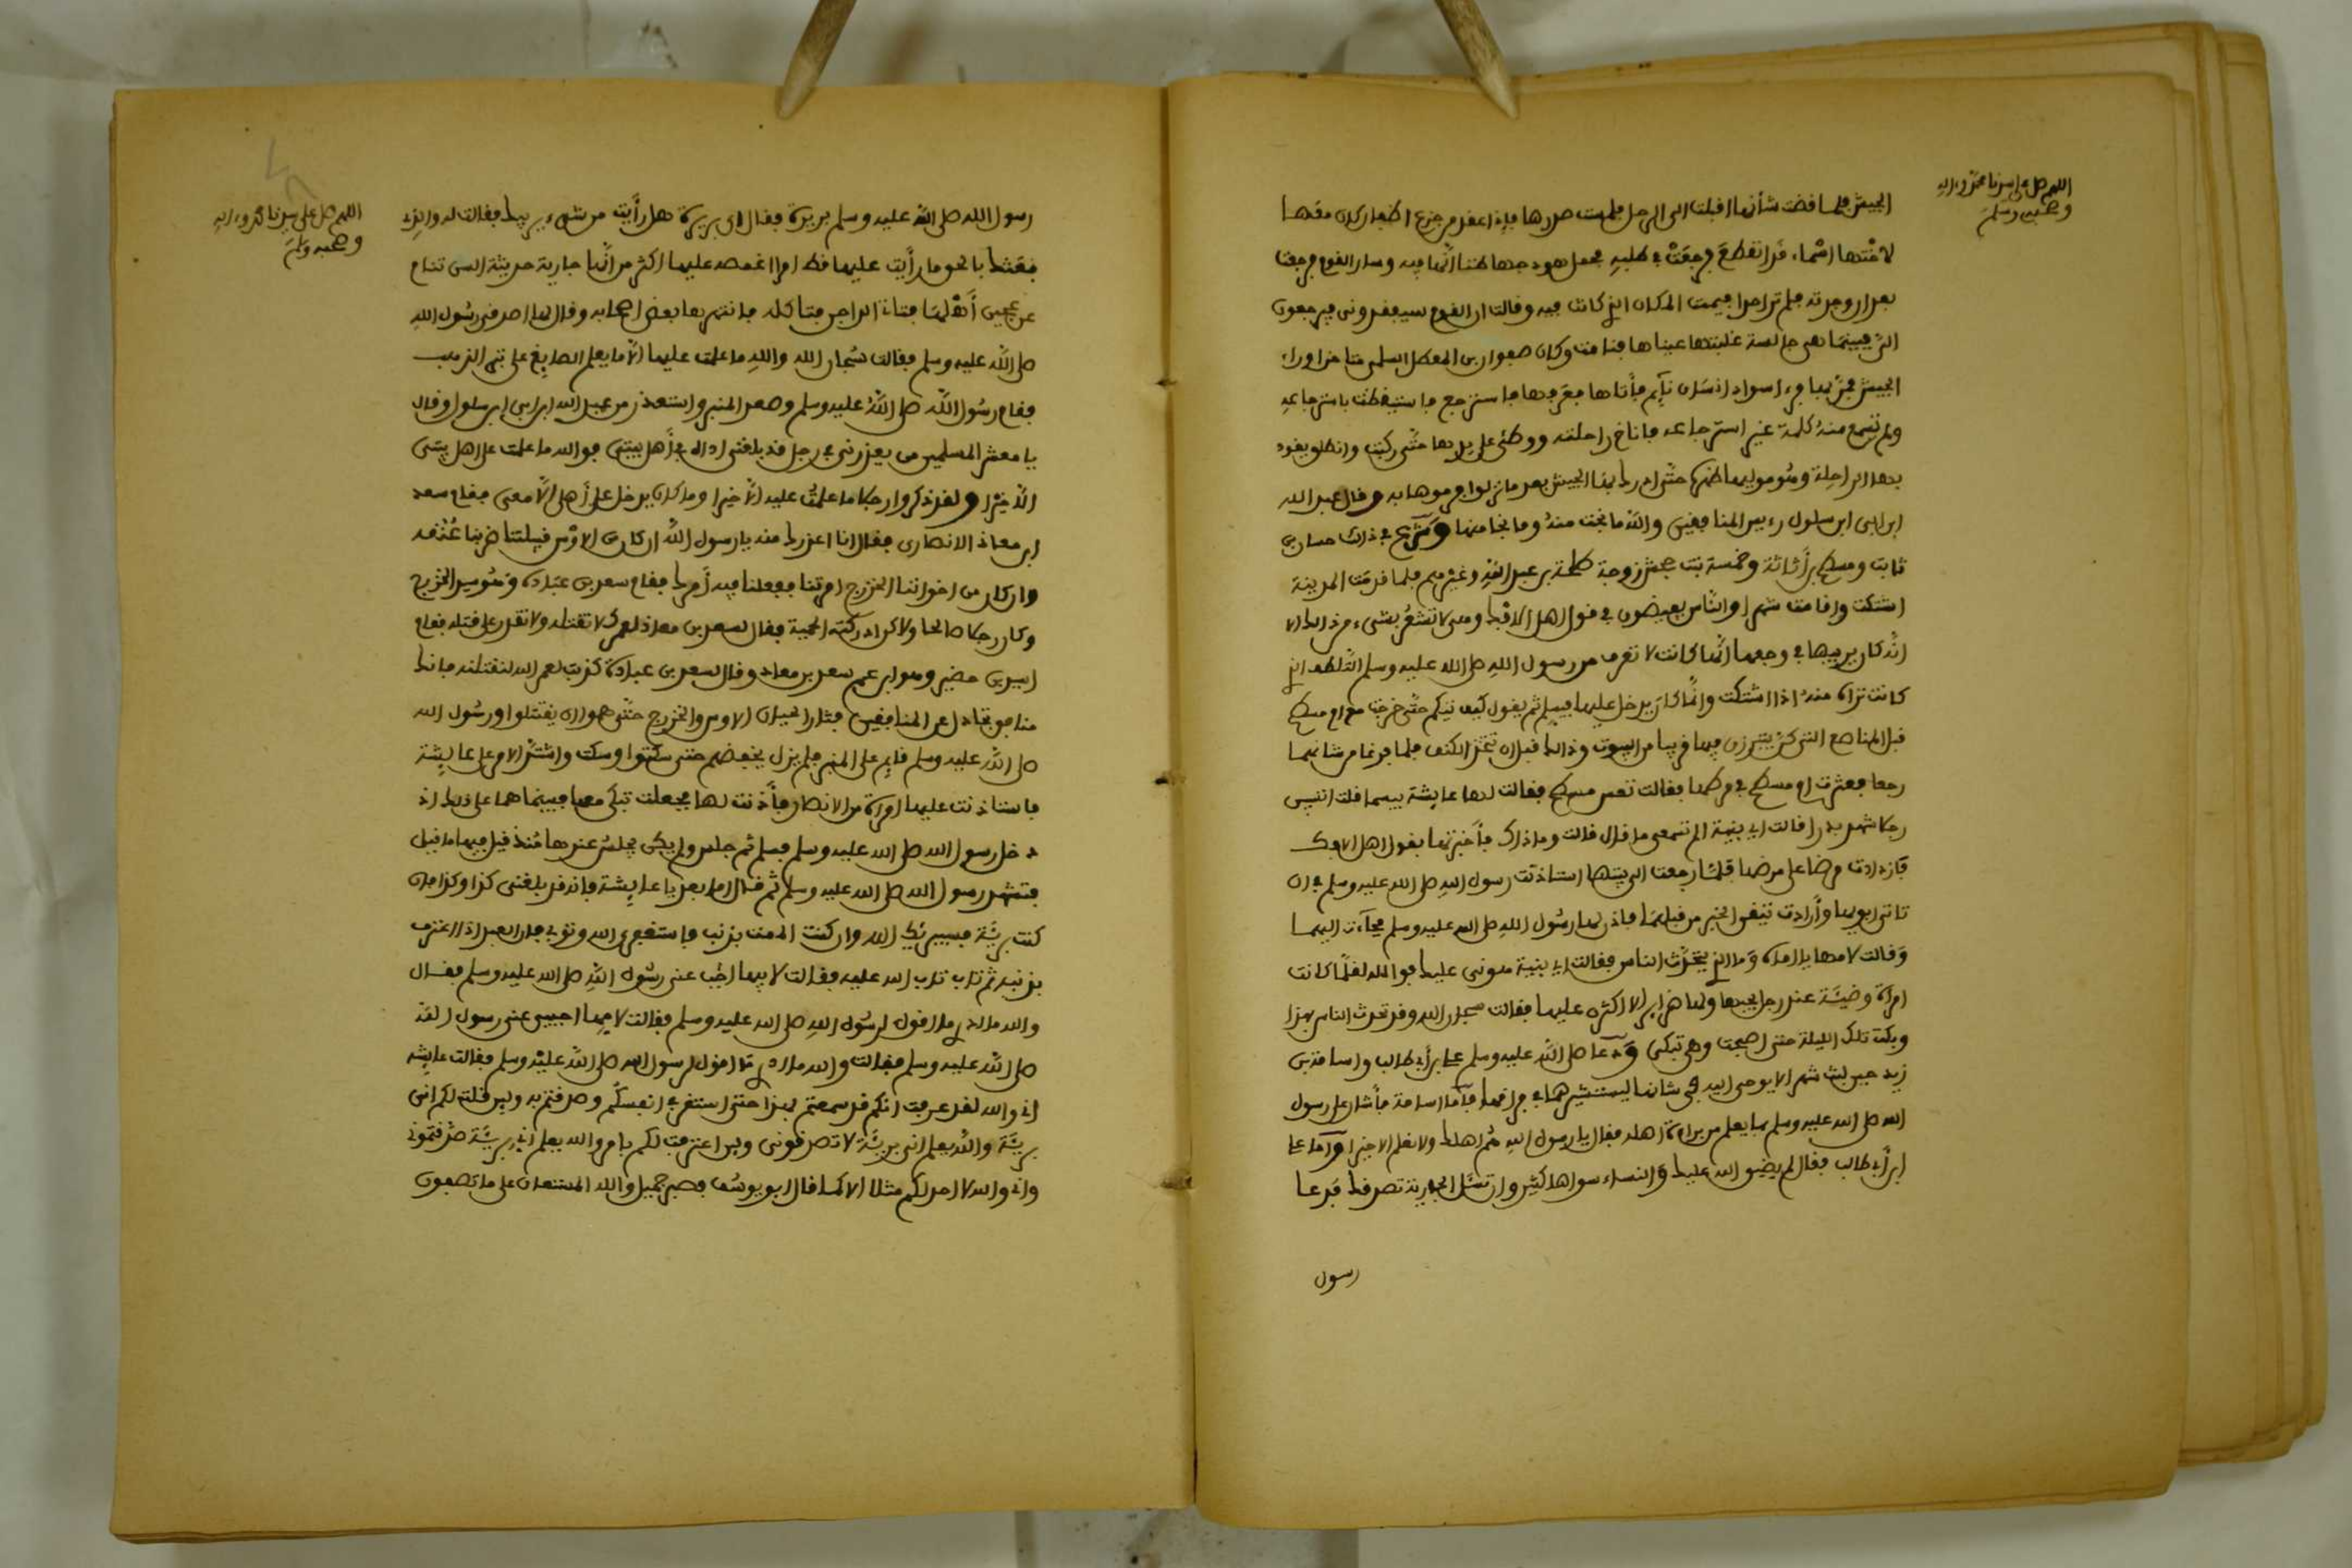 اللهم صل على سيدنا محمد وءاله
وصحبه وسلم
الجيش فلما قضت شأنها اقبلت الى الرحل فلمست صدرها فإذا عقد من جزع اظفار كان معها
لاختها اسماء قد انقطع فرجعت في طلبه فحمل هودجها ظننا أنها فيه وسار القوم فرجعت
بعد ان وجدته فلم تر احدا فيممت المكان الذي كانت فيه وقالت ان القوم سيفقدوني فيرجعون
الي فبينما هي جالسة غلبتها عيناها فنامت وكان صفوان بن المعطل السلمي متاخرا وراء
الجيش فمر بها فرءا سواد انسان نآيم فأتاها فعرفها فاسترجع فاستيقظت باسترجاعه
ولم تسمع منه كلمة غير استرجاعه فاناخ راحلته ووطئ على يدها حتى ركبت وانطلق يقود
بها الراحلة وهو موليها ظهره حتى ادرك بها الجيش بعد ما نزلوا فرموها به وقال عبد الله
ابن ابي ابن سلول رءيس المنافقين والله ما نجت منه وما نجا منها وشرع في ذلك حسان بن
ثابت ومسطح بن أثاثة وحمنة بنت جحش زوجة طلحة بن عبد الله وغيرهم فلما قدمت المدينة
اشتكت واقامت شهرا والناس يفيضون في قول اهل الافك وهي لا تشعر بشيء من ذلك الا
انه كان يريبها في وجعها أنها كانت لا تعرف من رسول الله صلى الله عليه وسلم اللطف الذي
كانت تراه منه اذا اشتكت وانما كان يدخل عليها فيسلم ثم يقول كيف تيكم حتى خرجت مع ام مسطح
قبل المناصع التي كن يتبرزن فيها قريبا من البيوت وذلك قبل ان تتخذ الكنف فلما فرغا من شأنهما
رجعا فعثرت ام مسطح في مرطها فقالت تعس مسطح فقالت لها عايشة بيسما قلت اتسبي
رجلا شهد بدرا قالت اي بنية الم تسمعي ما قال قالت وما ذاك فأخبرتها بقول اهل الافك
فازدادت مرضا على مرضها فلما رجعت الى بيتها استاذنت رسول الله صلى الله عليه وسلم في ان
تاتي ابويها وأرادت تيقن الخبر من قبلهما فاذن لها رسول الله صلى الله عليه وسلم فجآءت اليهما
وقالت لامها يا اماه وما الذي يتحدث الناس فقالت اي بنية هوني عليك فوالله لقلما كانت
امراة وضيئة عند رجل يحبها ولها ضراير الا اكثرن عليها فقالت سبحان الله وقد تحدث الناس بهذا
وبكت تلك الليلة حتى اصبحت وهي تبكي ودعا صلى الله عليه وسلم علي بن أبي طالب واسامة بن
زيد حين لبث شهرا لا يوحى اليه في شانها ليستشيرهما في فراقها فأما اسامة فأشار على رسول
الله صلى الله عليه وسلم بما يعلم من براءة اهله فقال يا رسول الله هم اهلك ولا نعلم الا خيرا وأما علي
ابن أبي طالب فقال لم يضيق الله عليك والنساء سواها كثير وان تسئل الجارية تصدقك فدعا
رسول
اللهم صل على سيدنا محمد وءاله
وصحبه وسلم
رسول الله صلى الله عليه وسلم بريرة فقال اي بريرة هل رأيت من شيء يريبك فقالت له والذي
بعثك بالحق ما رأيت عليها قط امرا اغمصه عليها اكثر من أنها جارية حديثة السن تنام
عن عجين أهلها فتاتي الداجن فتاكله فانتهرها بعض اصحابه وقال لها اصدقي رسول الله
صلى الله عليه وسلم فقالت سبحان الله والله ما علمت عليها الا ما يعلم الصايغ على تبر الذهب
فقام رسول الله صلى الله عليه وسلم وصعد المنبر واستعذر من عبد الله ابن ابي ابن سلول وقال
يا معشر المسلمين من يعذرني في رجل قد بلغني اذاه في أهل بيتي فوالله ما علمت على اهل بيتي
الا خيرا ولقد ذكروا رجلا ما علمت عليه الا خيرا وما كان يدخل على أهلي الا معي فقام سعد
ابن معاذ الانصاري فقال انا اعذرك منه يا رسول الله ان كان من الاوس قبيلتنا ضربنا عنقه
وان كان من اخواننا الخزرج امرتنا ففعلنا فيه أمرك فقام سعد بن عبادة وهو سيد الخزرج
وكان رجلا صالحا ولاكن ادركته الحمية فقال لسعد بن معاذ لعمرك لا تقتله ولا تقدر على قتله فقام
اسيد بن حضير وهو ابن عم سعد بن معاذ وقال لسعد بن عبادة كذبت لعمر الله لنقتلنه فانك
منافق تجادل عن المنافقين فثار الحيان الاوس والخزرج حتى هموا ان يقتتلوا ورسول الله
صلى الله عليه وسلم قايم على المنبر فلم يزل يخفضهم حتى سكتوا وسكت واشتد الامر على عايشة
فاستاذنت عليها امراة من الانصار فأذنت لها فجعلت تبكي معها فبينما هما على ذلك اذ
دخل رسول الله صلى الله عليه وسلم فسلم ثم جلس ولم يكن يجلس عندها منذ قيل فيها ما قيل
فتشهد رسول الله صلى الله عليه وسلم ثم قال اما بعد يا عايشة فانه قد بلغني كذا وكذا فان
كنت بريئة فسيبريك الله وان كنت الممت بذنب فاستغفري الله وتوبي فان العبد اذا اعترف
بذنبه ثم تاب تاب الله عليه فقالت لابيها اجب عني رسول الله صلى الله عليه وسلم فقال
والله ما ادري ما اقول لرسول الله صلى الله عليه وسلم فقالت لامها اجيبي عني رسول الله
صلى الله عليه وسلم فقالت والله ما ادري ما اقول لرسول الله صلى الله عليه وسلم فقالت عايشة
اني والله لقد عرفت انكم قد سمعتم بهذا حتى استقر في انفسكم وصدقتم به ولين قلت لكم اني
بريئة والله يعلم اني بريئة لا تصدقوني ولين اعترفت لكم بامر والله يعلم اني بريئة صدقتموني
واني والله لا اجد لكم مثلا الا كما قال ابو يوسف فصبر جميل والله المستعان على ما تصفون